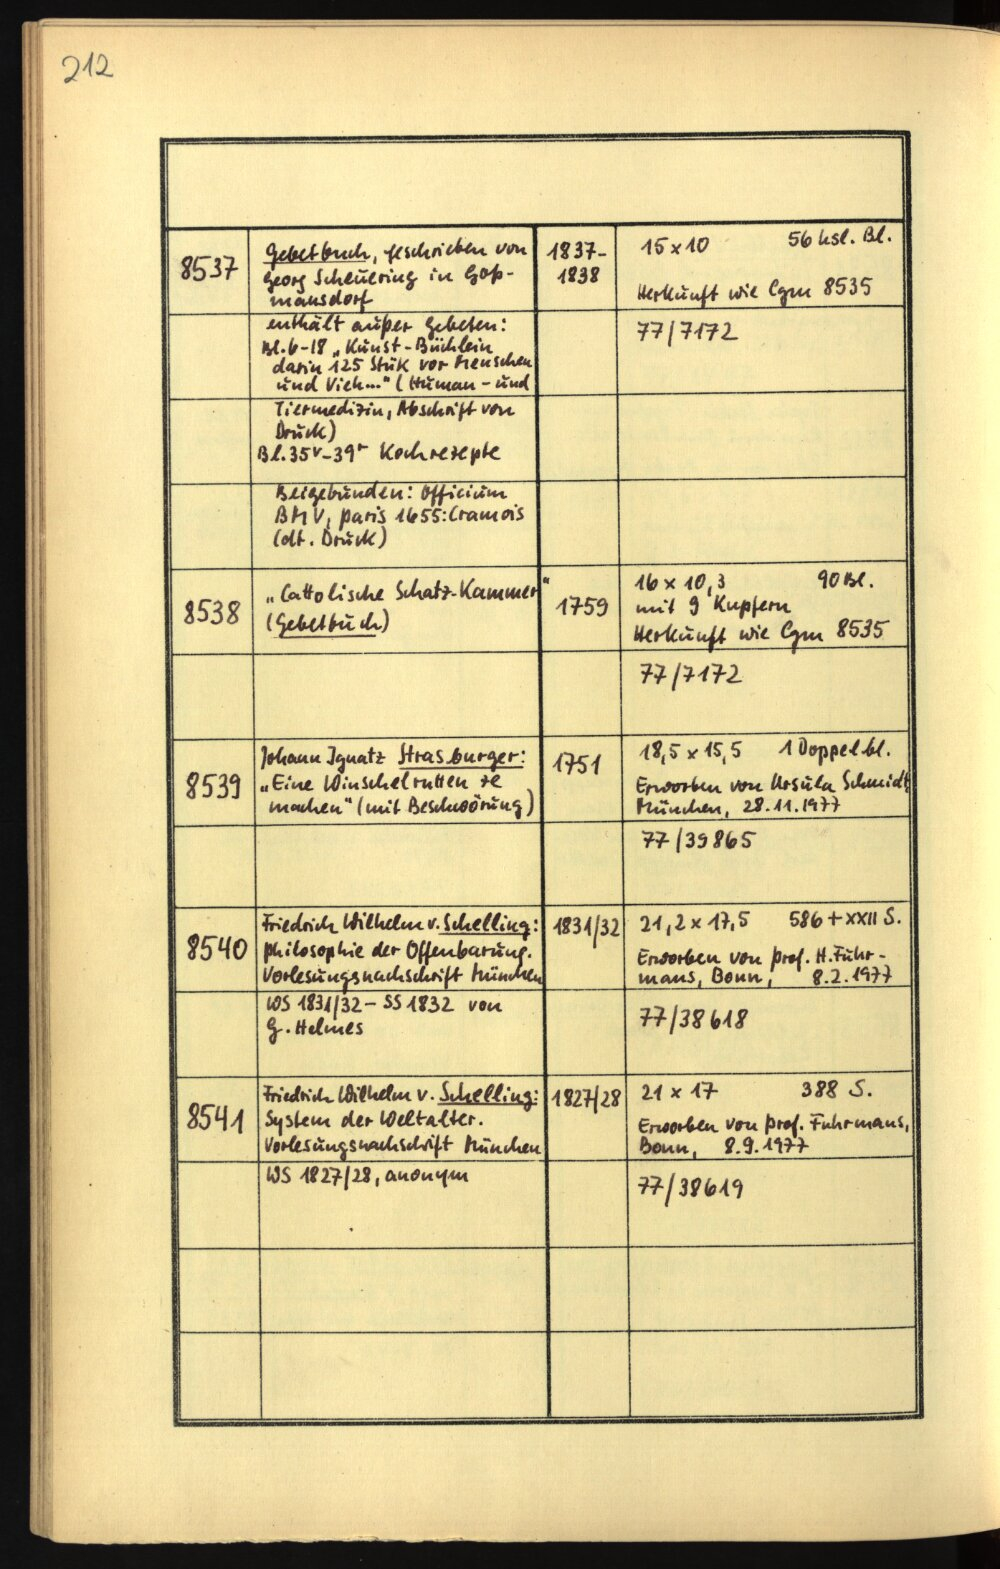 212
8537
Gebetbuch, geschrieben von
Georg Scheuering in Goß-
mansdorf
1837-
1838
15 x 10 56 hsl. Bl.
Herkunft wie Cgm 8535
enthält außer Gebeten:
Bl. 6-18 „Kunst-Büchlein
darin 125 Stuk vor Menschen
und Vieh..." (Human- und
77/7172
Tiermedizin, Abschrift von
Druck)
Bl. 35v-39r Kochrezepte
Beigebunden: Officium
BMV, Paris 1655: Cramois
(dt. Druck)
8538
„Cattolische Schatz-Kammer"
(Gebetbuch)
1759
16 x 10,3 90 Bl.
mit 9 Kupfern
Herkunft wie Cgm 8535
77/7172
8539
Johann Ignatz Strasburger:
„Eine Winschelrutten ze
machen" (mit Beschwörung)
1751
18,5 x 15,5 1 Doppelbl.
Erworben von Ursula Schmidt,
München, 28.11.1977
77/39865
8540
Friedrich Wilhelm v. Schelling:
Philosophie der Offenbarung.
Vorlesungsnachschrift München
1831/32
21,2 x 17,5 586 + XXII S.
Erworben von Prof. H. Fuhr-
mans, Bonn, 8.2.1977
WS 1831/32 - SS 1832 von
G. Helmes
77/38618
8541
Friedrich Wilhelm v. Schelling:
System der Weltalter.
Vorlesungsnachschrift München
1827/28
21 x 17 388 S.
Erworben von Prof. Fuhrmans,
Bonn, 8.9.1977
WS 1827/28, anonym
77/38619